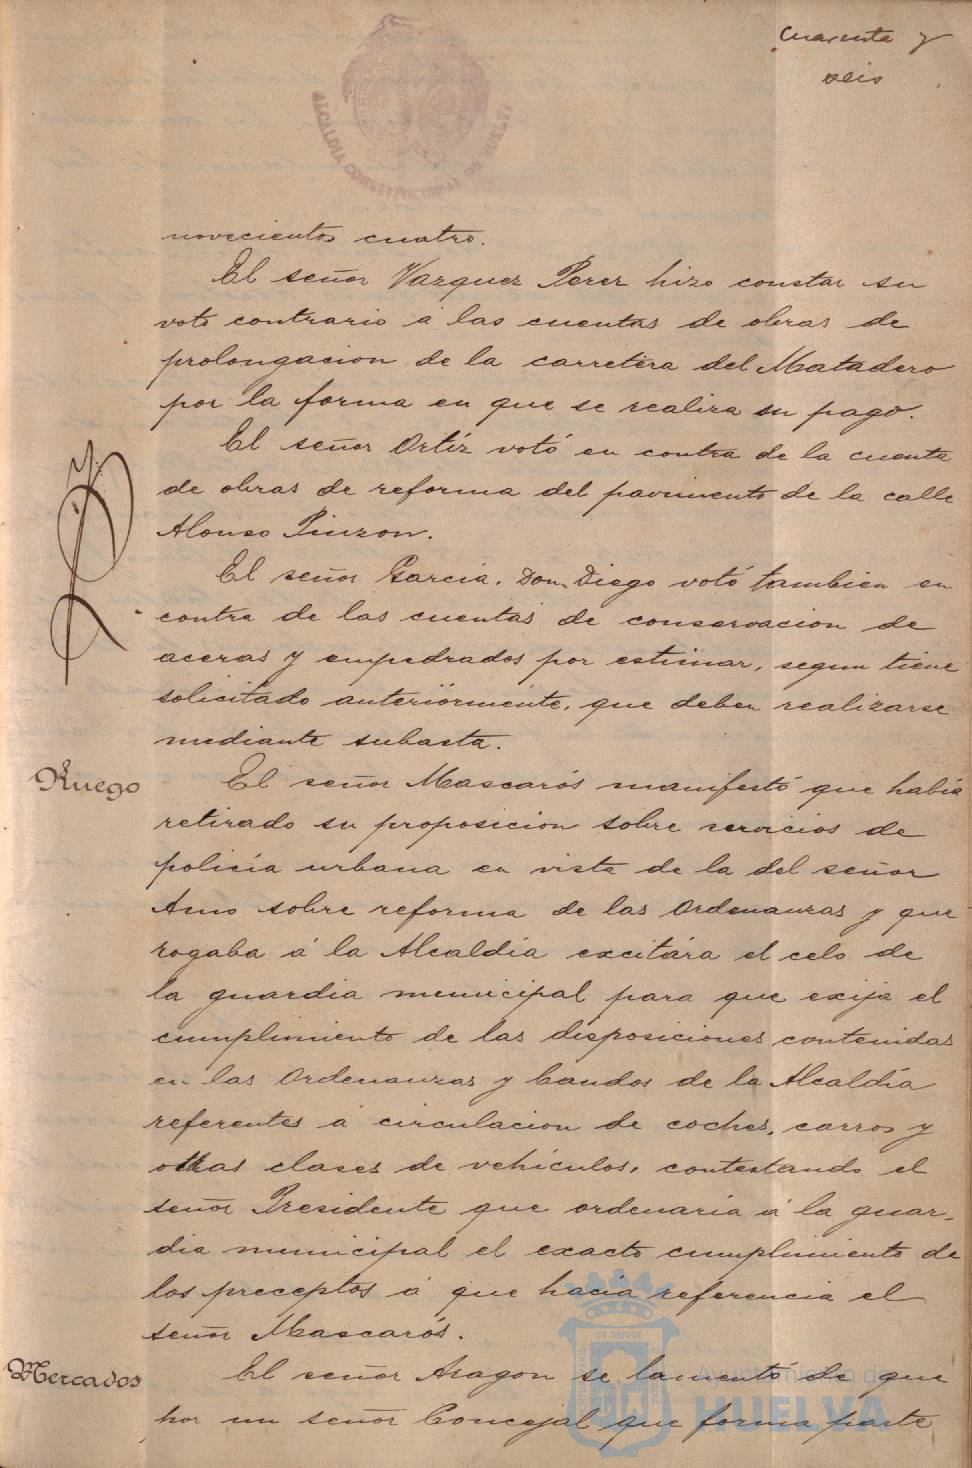 Cuarenta y
seis
ALCALDIA CONSTITUCIONAL DE HUELVA
novecientos cuatro.
El señor Vazquez Perez hizo constar su
voto contrario á las cuentas de obras de
prolongacion de la carretera del Matadero
por la forma en que se realiza su pago.
El señor Ortíz votó en contra de la cuenta
de obras de reforma del pavimento de la calle
Alonso Pinzon.
El señor Garcia, Don Diego votó tambien en
contra de las cuentas de conservacion de
aceras y empedrados por estimar, segun tiene
solicitado anteriormente, que deben realizarse
mediante subasta.
Ruego
El señor Mascarós manifestó que había
retirado su proposicion sobre servicios de
policía urbana en vista de la del señor
Amo sobre reforma de las Ordenanzas y que
rogaba á la Alcaldía excitára el celo de
la guardia municipal para que exija el
cumplimiento de las disposiciones contenidas
en las Ordenanzas y bandos de la Alcaldía
referentes á circulacion de coches, carros y
otras clases de vehículos, contestando el
señor Presidente que ordenaría á la guar-
dia municipal el exacto cumplimiento de
los preceptos á que hacía referencia el
señor Mascarós.
Mercados
El señor Aragon se lamentó de que
por un señor Concejal que forma parte
Ayuntamiento de
HUELVA